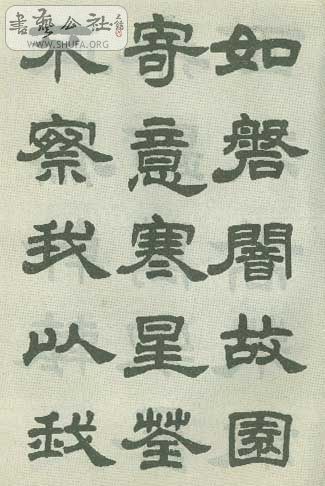 書藝公社
WWW.SHUFA.ORG
如磐闇故園
寄意寒星荃
不察我以我